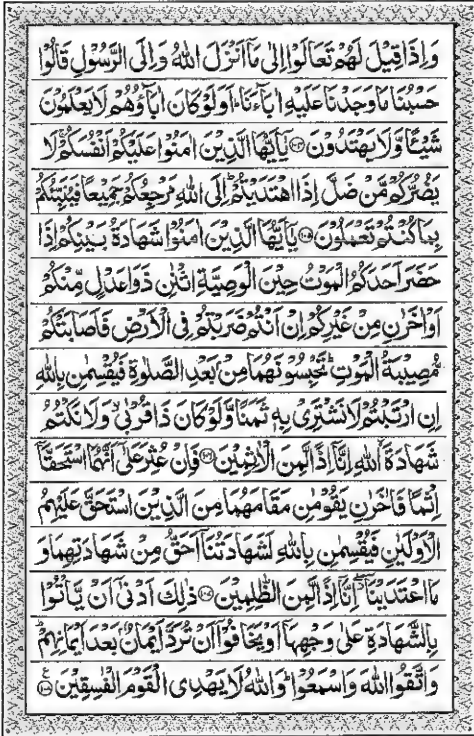 وَاِذَا قِيْلَ لَهُمْ تَعَالَوْا اِلٰى مَاۤ اَنْزَلَ اللّٰهُ وَاِلَى الرَّسُوْلِ قَالُوْا
حَسْبُنَا مَا وَجَدْنَا عَلَيْهِ اٰبَآءَنَا ؕ اَوَلَوْ كَانَ اٰبَآؤُهُمْ لَا يَعْلَمُوْنَ
شَيْـًٔا وَّلَا يَهْتَدُوْنَ ﴿۱۰۴﴾ يٰۤاَيُّهَا الَّذِيْنَ اٰمَنُوْا عَلَيْكُمْ اَنْفُسَكُمْ ۚ لَا
يَضُرُّكُمْ مَّنْ ضَلَّ اِذَا اهْتَدَيْتُمْ ؕ اِلَى اللّٰهِ مَرْجِعُكُمْ جَمِيْعًا فَيُنَبِّئُكُمْ
بِمَا كُنْتُمْ تَعْمَلُوْنَ ﴿۱۰۵﴾ يٰۤاَيُّهَا الَّذِيْنَ اٰمَنُوْا شَهَادَةُ بَيْنِكُمْ اِذَا
حَضَرَ اَحَدَكُمُ الْمَوْتُ حِيْنَ الْوَصِيَّةِ اثْنٰنِ ذَوَا عَدْلٍ مِّنْكُمْ
اَوْ اٰخَرٰنِ مِنْ غَيْرِكُمْ اِنْ اَنْتُمْ ضَرَبْتُمْ فِى الْاَرْضِ فَاَصَابَتْكُمْ
مُّصِيْبَةُ الْمَوْتِ ؕ تَحْبِسُوْنَهُمَا مِنْۢ بَعْدِ الصَّلٰوةِ فَيُقْسِمٰنِ بِاللّٰهِ
اِنِ ارْتَبْتُمْ لَا نَشْتَرِىْ بِهٖ ثَمَنًا وَّلَوْ كَانَ ذَا قُرْبٰى ۙ وَلَا نَكْتُمُ
شَهَادَةَ ۙ اللّٰهِ اِنَّاۤ اِذًا لَّمِنَ الْاٰثِمِيْنَ ﴿۱۰۶﴾ فَاِنْ عُثِرَ عَلٰۤى اَنَّهُمَا اسْتَحَقَّاۤ
اِثْمًا فَاٰخَرٰنِ يَقُوْمٰنِ مَقَامَهُمَا مِنَ الَّذِيْنَ اسْتَحَقَّ عَلَيْهِمُ
الْاَوْلَيٰنِ فَيُقْسِمٰنِ بِاللّٰهِ لَشَهَادَتُنَاۤ اَحَقُّ مِنْ شَهَادَتِهِمَا وَ
مَا اعْتَدَيْنَاۤ ۖ اِنَّاۤ اِذًا لَّمِنَ الظّٰلِمِيْنَ ﴿۱۰۷﴾ ذٰلِكَ اَدْنٰۤى اَنْ يَّاْتُوْا
بِالشَّهَادَةِ عَلٰى وَجْهِهَاۤ اَوْ يَخَافُوْۤا اَنْ تُرَدَّ اَيْمَانٌۢ بَعْدَ اَيْمَانِهِمْ ؕ
وَاتَّقُوا اللّٰهَ وَاسْمَعُوْا ؕ وَاللّٰهُ لَا يَهْدِى الْقَوْمَ الْفٰسِقِيْنَ ﴿۱۰۸﴾ ع